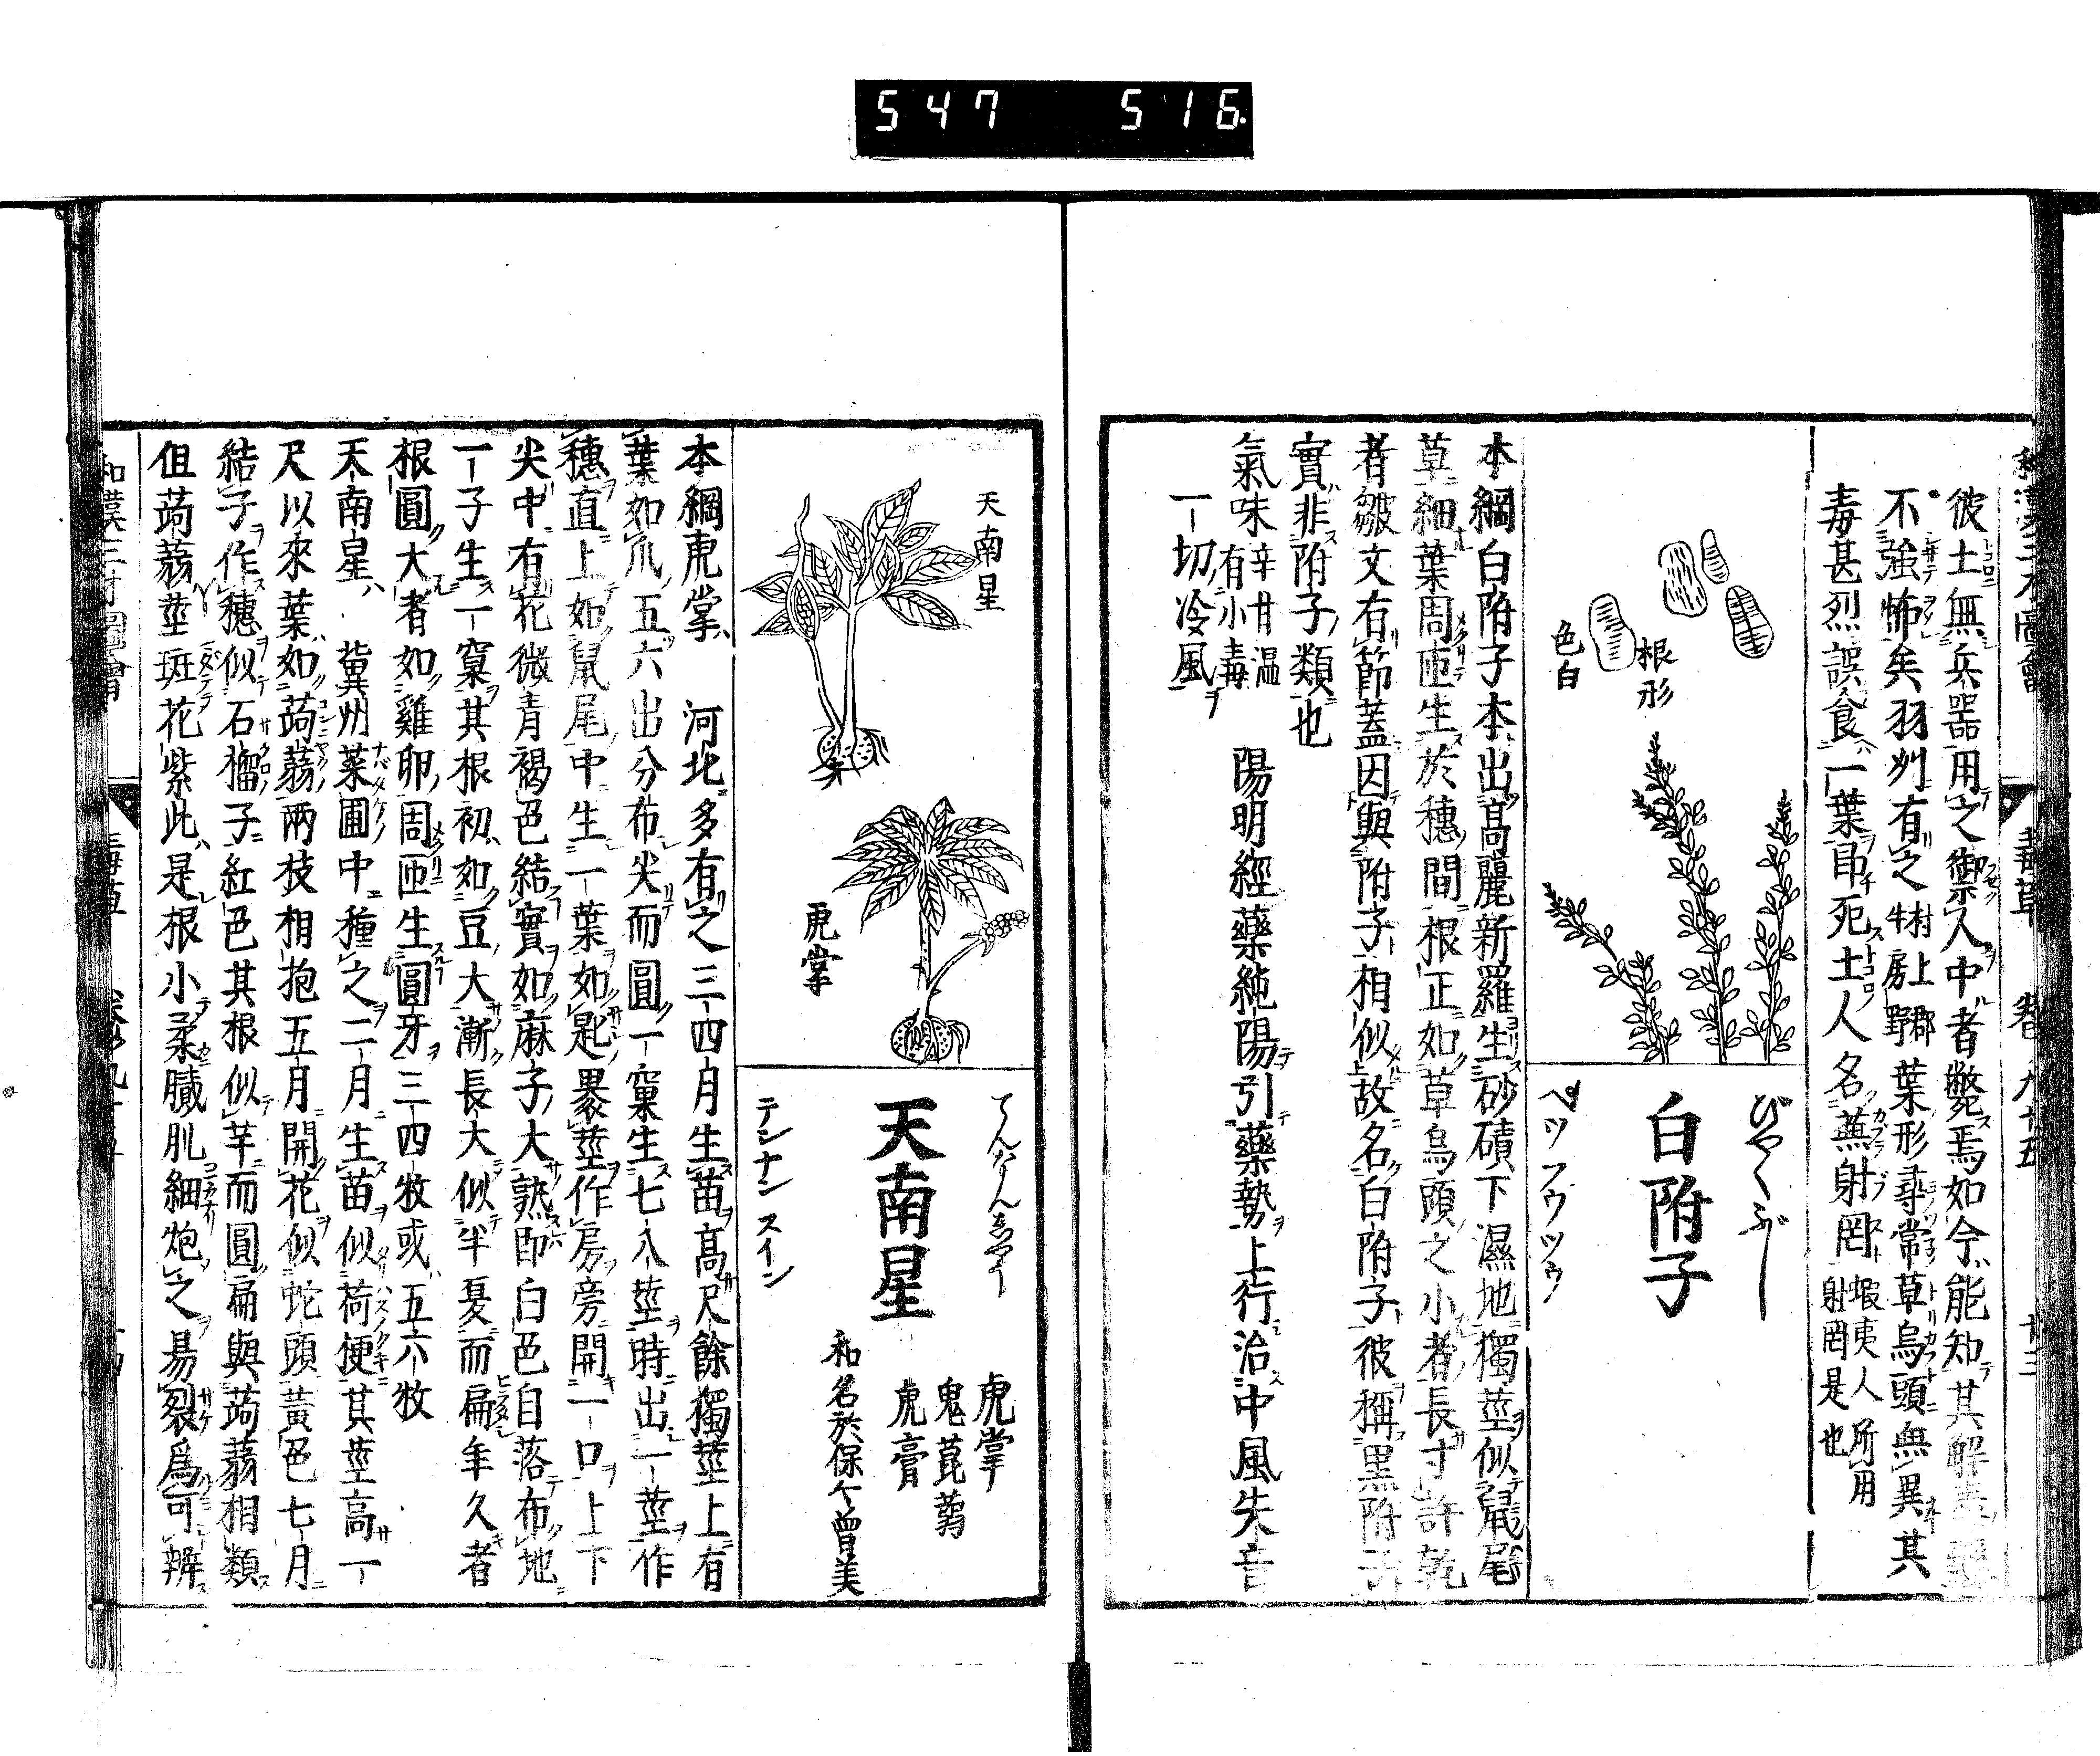 547 516
彼土無兵器用之禦人中者斃焉如今能知其解
不強怖矣羽州有之村上郡牛房野葉形尋常草烏頭無異其
毒甚烈誤食一葉即死土人名蕪射罔蝦夷人所用射罔是也
根形
色白
びやくぶし
白附子
ペツ フウ ツウ
本綱白附子本出高麗新羅生砂磧下濕地獨莖似鼠尾
草細葉周匝生於穗間根正如草烏頭之小者長寸許乾
者皺文有節蓋因與附子相似故名白附子彼稱黑附子
實非附子類也
氣味辛甘温有小毒 陽明經藥純陽引藥勢上行治中風失音
一切冷風
天南星
虎掌
てんなんしやう
天南星
テン ナン スイン
虎掌
鬼蒟蒻
虎膏
和名於保々曾美
本綱虎掌 河北多有之三四月生苗高尺餘獨莖上有
葉如爪五六出分布尖而圓一窠生七八莖時出一莖作
穗直上如鼠尾中生一葉如匙裹莖作房旁開一口上下
尖中有花微青褐色結實如麻子大熟即白色自落布地
一子生一窠其根初如豆大漸長大似半夏而扁年久者
根圓大者如雞卵周匝生圓牙三四枚或五六枚
天南星 冀州菜圃中種之二月生苗似荷梗其莖高一
尺以來葉如蒟蒻兩枝相抱五月開花似蛇頭黃色七月
結子作穗似石榴子紅色其根似芋而圓扁與蒟蒻相類
但蒟蒻莖斑花紫此是根小柔膩肌細炮之易裂爲可辨
和漢三才圖會 毒草 卷九十五